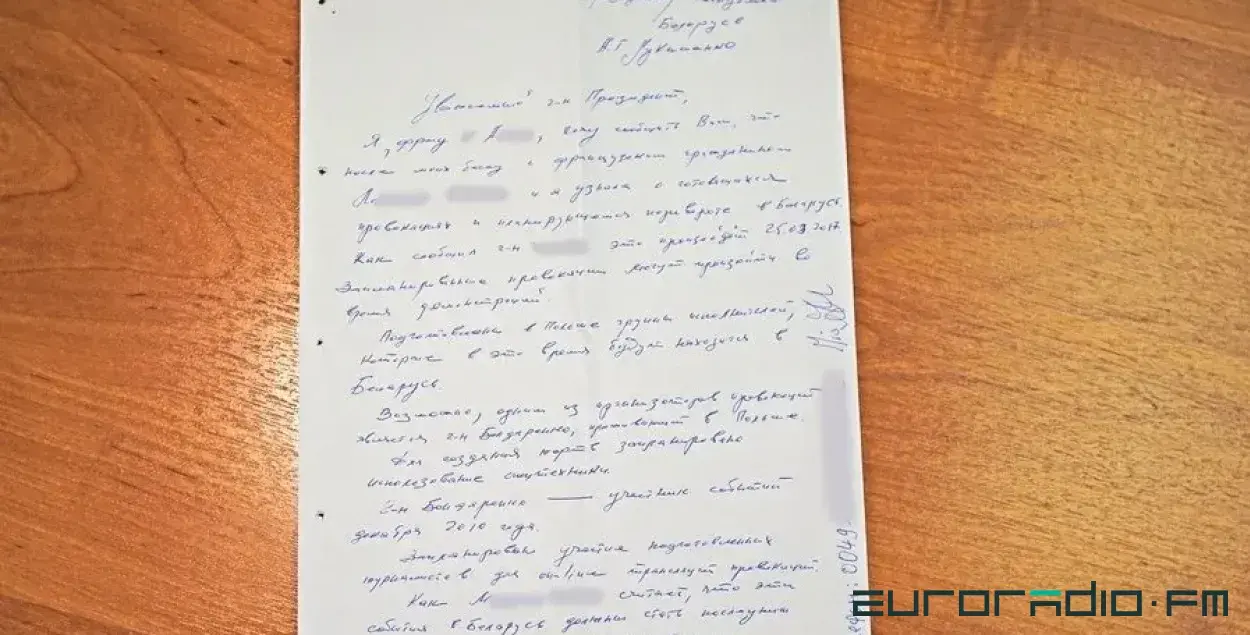 Беларусь
А.Г. Лукашенко
Уважаемый г-н Президент,
Я, хочу сообщить Вам, что
после моих бесед с французским гражданином
и я узнала о готовящихся
провокациях и планирующемся перевороте в Беларусь.
Как сообщил г-н это произойдёт 25.03.2017.
Запланированные провокации могут произойти во
время демонстраций.
Подготовлены в Польше группы исполнителей,
которые в это время будут находится в
Беларусь.
Возможно, одним из организаторов провокаций
является г-н Бондаренко, проживающий в Польше.
Для создания жертв запланировано
использование спецтехники.
Г-н Бондаренко — участник событий
декабря 2010 года.
Запланировано участие подготовленных
журналистов для online трансляций провокаций.
Как считает, что эти
события в Беларусь должны стать последним
0049
euroradio.fm